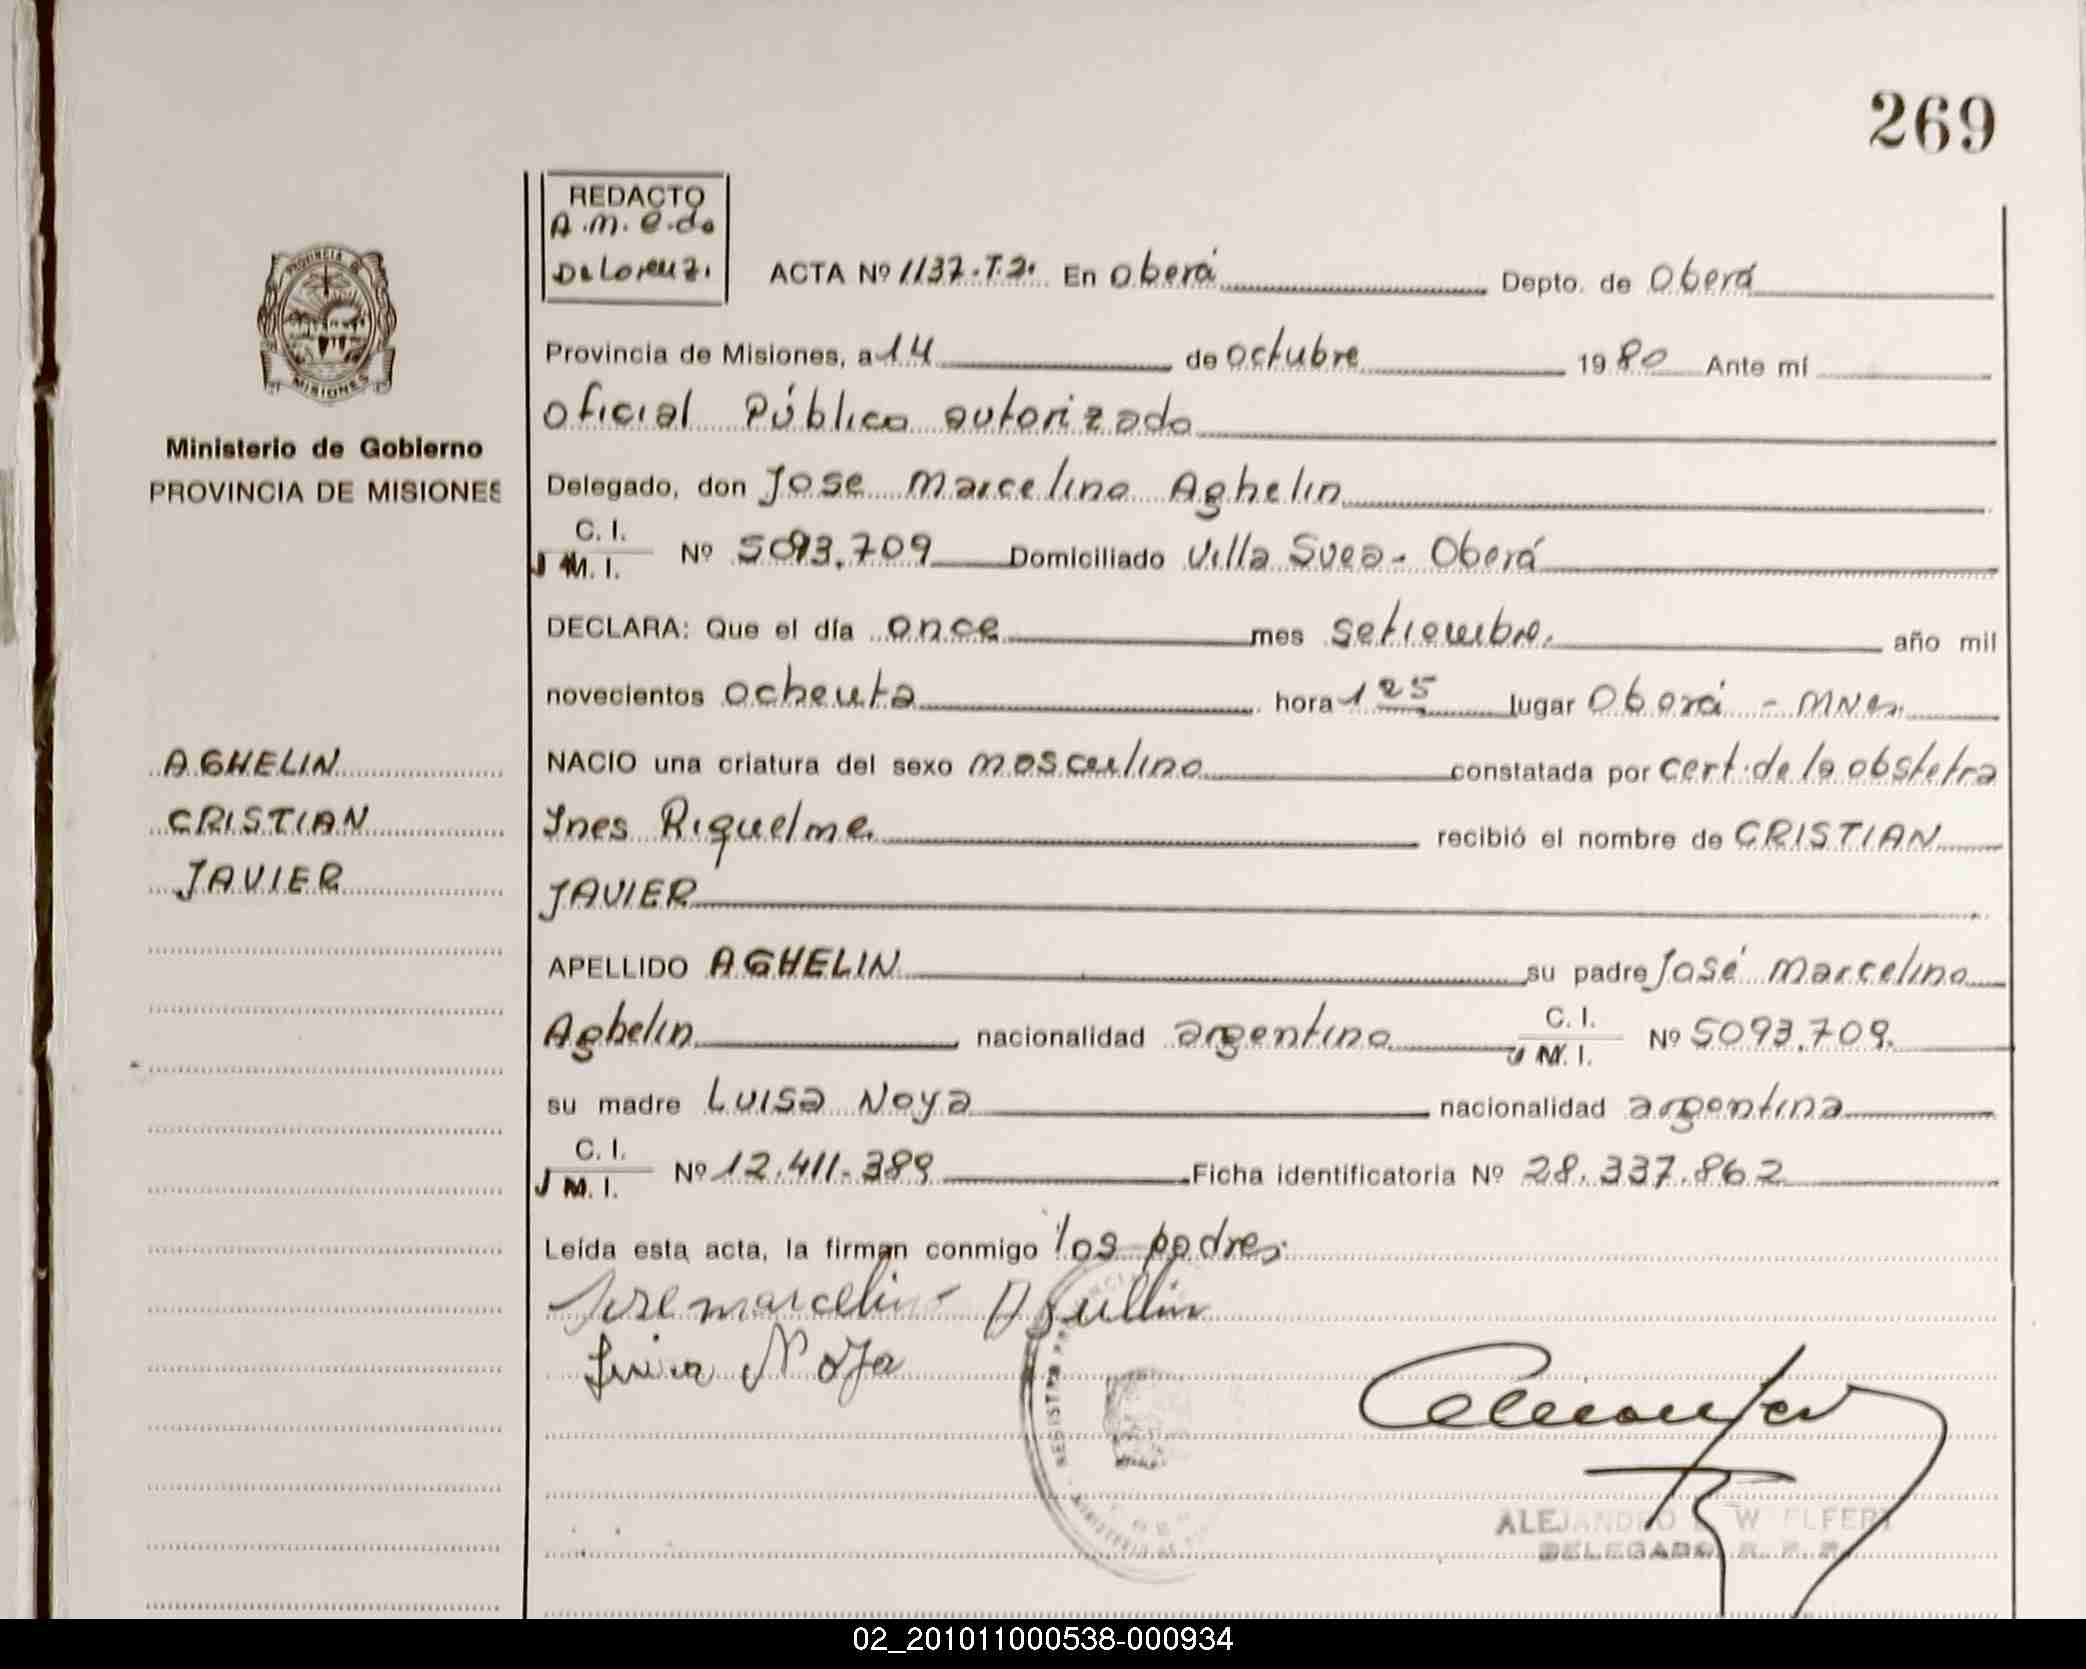 269
REDACTO
A.M. e.do
De Lorenzi
ACTA Nº 1137.T.2. En Oberá Depto. de Oberá
PROVINCIA DE
MISIONES
Provincia de Misiones, a 14 de octubre 1980 Ante mí
Oficial Público autorizado
Ministerio de Gobierno
PROVINCIA DE MISIONES
Delegado, don Jose Marcelino Aghelin
C. I.
M. I. Nº 5093.709 Domiciliado Villa Svea - Oberá
DECLARA: Que el día once mes setiembre año mil
novecientos ochenta hora 1 25 lugar Oberá - Mnes.
AGHELIN
CRISTIAN
JAVIER
NACIO una criatura del sexo masculino constatada por cert. de la obstetra
Ines Riquelme recibió el nombre de CRISTIAN
JAVIER
APELLIDO AGHELIN su padre José Marcelino
Aghelin nacionalidad argentino C. I. M. I. Nº 5093.709.
su madre Luisa Noya nacionalidad argentina
C. I.
M. I. Nº 12.411.389 Ficha identificatoria Nº 28.337.862
Leída esta acta, la firman conmigo los padres.
Jose marcelino
Luisa Noya
REGISTRO
ALEJANDRO
DELEGADO R. P. P.
02_201011000538-000934